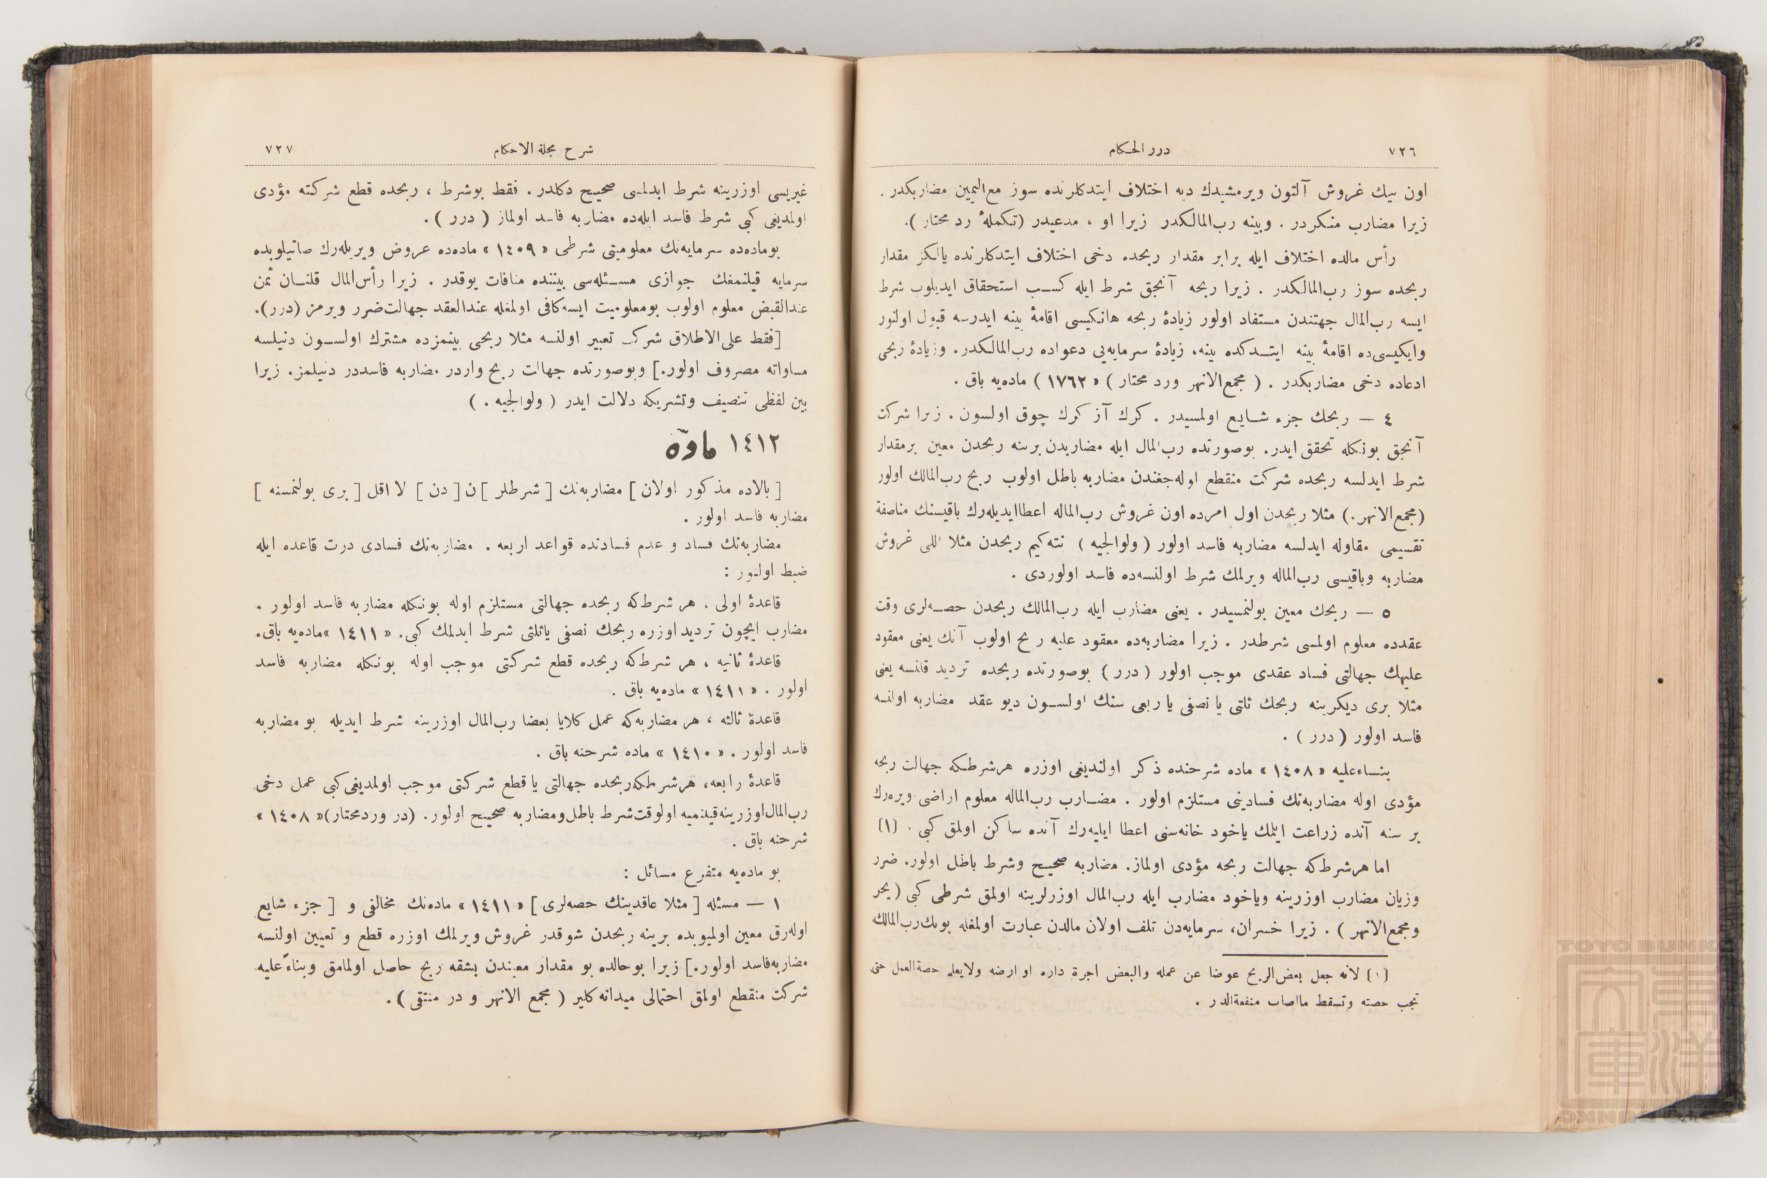 ٧٢٦
درر الحكام
اون بيك غروش آلتون ويرمشيدك ديه اختلاف ايتدكلرنده سوز مع اليمين مضاربكدر .
زيرا مضارب منكردر . وبينه رب‌المالكدر زيرا او ، مدعيدر (تكملهٔ رد محتار ).
رأس مالده اختلاف ايله برابر مقدار ربحده دخى اختلاف ايتدكلرنده يالكز مقدار
ربحده سوز رب‌المالكدر . زيرا ربحه آنجق شرط ايله كسب استحقاق ايديلوب شرط
ايسه رب‌المال جهتندن مستفاد اولور زيادهٔ ربحه هانكيسى اقامهٔ بينه ايدرسه قبول اولنور
وايكيسى‌ده اقامهٔ بينه ايتدكده بينه، زيادهٔ سرمايه‌يى دعواده رب‌المالكدر. وزيادهٔ ربحى
ادعاده دخى مضاربكدر . ( مجمع‌الانهر ورد محتار ) « ١٧٦٢ ) ماده‌يه باق .
٤ — ربحك جزء شايع اولمسيدر . كرك آز كرك چوق اولسون . زيرا شركت
آنجق بونكله تحقق ايدر. بوصورتده رب‌المال ايله مضاربدن برينه ربحدن معين برمقدار
شرط ايدلسه ربحده شركت منقطع اوله‌جغندن مضاربه باطل اولوب ربح رب‌المالك اولور
(مجمع‌الانهر.) مثلا ربحدن اول امرده اون غروش رب‌الماله اعطا ايديله‌رك باقيسنك مناصفة
تقسيمى مقاوله ايدلسه مضاربه فاسد اولور ( ولوالجيه ) نته‌كيم ربحدن مثلا اللى غروش
مضاربه وباقيسى رب‌الماله ويرلمك شرط اولنسه‌ده فاسد اولوردى .
٥ — ربحك معين بولنمسيدر . يعنى مضارب ايله رب‌المالك ربحدن حصه‌لرى وقت
عقدده معلوم اولمسى شرطدر . زيرا مضاربه‌ده معقود عليه ربح اولوب آنك يعنى معقود
عليهك جهالتى فساد عقدى موجب اولور ( درر ) بوصورتده ربحده ترديد قلنسه يعنى
مثلا برى ديكرينه ربحك ثلثى يا نصفى يا ربعى سنك اولسون ديو عقد مضاربه اولنسه
فاسد اولور ( درر ) .
بناءعليه « ١٤٠٨ » ماده شرحنده ذكر اولنديغى اوزره هرشرطكه جهالت ربحه
مؤدى اوله مضاربه‌نك فسادينى مستلزم اولور . مضارب رب‌الماله معلوم اراضى ويره‌رك
بر سنه آنده زراعت ايتمك ياخود خانه‌سنى اعطا ايليه‌رك آنده ساكن اولمق كبى . (١)
اما هرشرطكه جهالت ربحه مؤدى اولماز. مضاربه صحيح وشرط باطل اولور. ضرر
وزيان مضارب اوزرينه وياخود مضارب ايله رب‌المال اوزرلرينه اولمق شرطى كبى (بحر
ومجمع‌الانهر ) . زيرا خسران، سرمايه‌دن تلف اولان مالدن عبارت اولمغله بونك رب‌المالك
(١) لأنه جعل بعض‌الربح عوضا عن عمله والبعض اجرة داره او ارضه ولايعلم حصة‌العمل حتى
تجب حصته وتسقط مااصاب منفعة‌الدار .
شرح مجلة الاحكام
٧٢٧
غيريسى اوزرينه شرط ايدلمسى صحيح دكلدر . فقط بوشرط ، ربحده قطع شركته مؤدى
اولمديغى كبى شرط فاسد ايله‌ده مضاربه فاسد اولماز ( درر ) .
بوماده‌ده سرمايه‌نك معلوميتى شرطى « ١٤٠٩ » ماده‌ده عروض ويريله‌رك صاتيلوبده
سرمايه قيلنمغك جوازى مسئله‌سى بيننده منافات يوقدر . زيرا رأس‌المال قلنان ثمن
عندالقبض معلوم اولوب بومعلوميت ايسه كافى اولمغله عندالعقد جهالت ضرر ويرمز (درر).
[فقط على‌الاطلاق شركت تعبير اولنسه مثلا ربحى بينمزده مشترك اولسون دنيلسه
مساواته مصروف اولور.] وبوصورتده جهالت ربح واردر مضاربه فاسددر دنيلمز. زيرا
بين لفظى تنصيف وتشريكه دلالت ايدر ( ولوالجيه . )
١٤١٢ ماده
[ بالاده مذكور اولان ] مضاربه‌نك [ شرطلر ]ن[ دن ] لا اقل [ برى بولنمسه ]
مضاربه فاسد اولور .
مضاربه‌نك فساد و عدم فسادنده قواعد اربعه . مضاربه‌نك فسادى درت قاعده ايله
ضبط اولنور :
قاعدهٔ اولى . هر شرط‌كه ربحده جهالتى مستلزم اوله بونكله مضاربه فاسد اولور .
مضارب ايچون ترديد اوزره ربحك نصفى ياثلثى شرط ايدلمك كبى. « ١٤١١ »ماده‌يه باق.
قاعدهٔ ثانيه ، هر شرط‌كه ربحده قطع شركتى موجب اوله بونكله مضاربه فاسد
اولور . « ١٤١١ » ماده‌يه باق .
قاعدهٔ ثالثه ، هر مضاربه‌كه عمل كلا يا بعضا رب‌المال اوزرينه شرط ايديله بو مضاربه
فاسد اولور . « ١٤١٠ » ماده شرحنه باق .
قاعدهٔ رابعه، هرشرطكه ربحده جهالتى يا قطع شركتى موجب اولمديغى كبى عمل دخى
رب‌المال اوزرينه قيدنميه اولوقت شرط باطل ومضاربه صحيح اولور. (در وردمحتار)« ١٤٠٨ »
شرحنه باق .
بو ماده‌يه متفرع مسائل :
١ — مسئله [ مثلا عاقدينك حصه‌لرى ] « ١٤١١ » ماده‌نك مخالفى و [ جزء شايع
اوله‌رق معين اولميوبده برينه ربحدن شوقدر غروش ويرلمك اوزره قطع و تعيين اولنسه
مضاربه فاسد اولور.] زيرا بوحالده بو مقدار معيندن بشقه ربح حاصل اولمامق وبناءً عليه
شركت منقطع اولمق احتمالى ميدانه كلير ( مجمع الانهر و در منتقى ) .
TOYO BUNKO